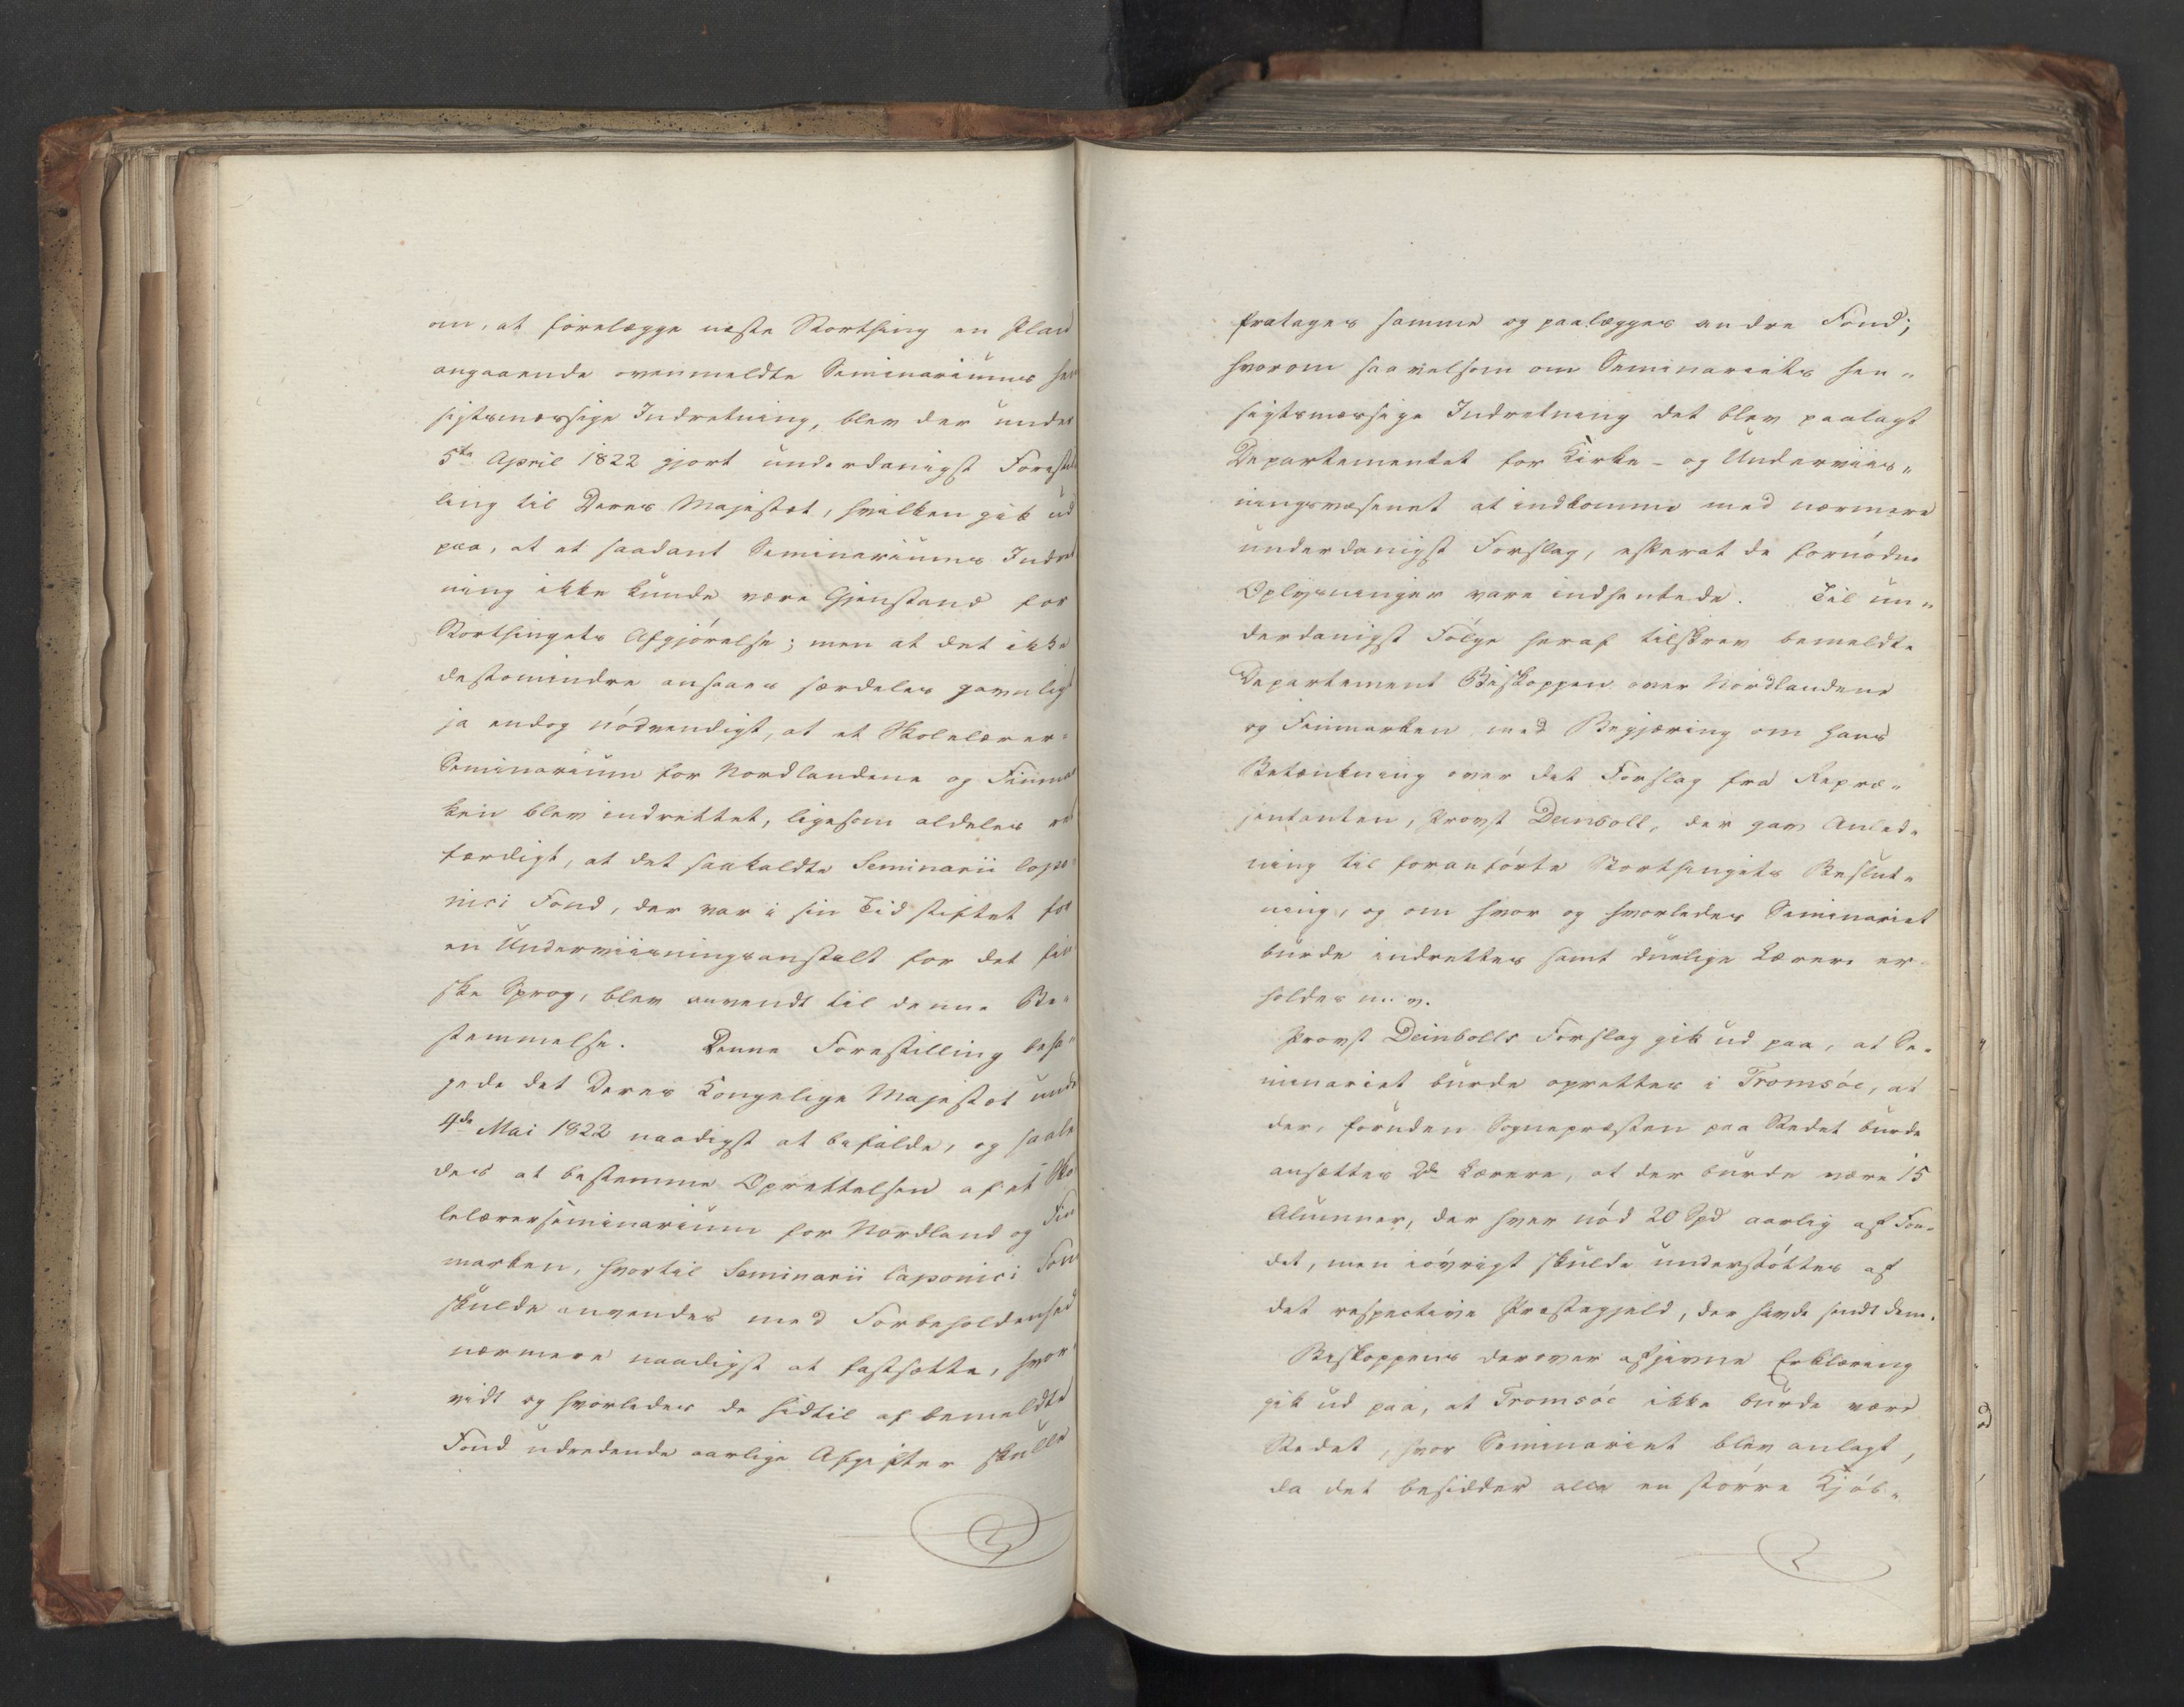 om, at forelægge næste Storthing en Plan
angaaende ovenmeldte Seminariums hen
sigtsmæssige Indretning, blev der under
5te April 1822 gjort underdanigst Forestil
ling til Deres Majestæt, hvilken gik ud
paa, at et saadant Seminariums Indret
ning ikke kunde være Gjenstand for
Storthingets Afgjörelse; men at det ikke
destomindre ansaaes særdeles gavnligt
ja endog nödvendigt, at et Skolelærer=
Seminarium for Nordlandene og Finmar
ken blev indrettet, ligesom aldeles ret
færdigt, at det saakaldte Seminarii lapo=
nici Fond, der var i sin Tid stiftet for
en Underviisningsanstalt for det fin
ske Sprog, blev anvendt til denne Be=
stemmelse. Denne Forestilling beha=
gede det Deres Kongelige Majestæt under
4de Mai 1822 naadigst at bifalde, og saale
des at bestemme Oprettelsen af et Sko
lelærerseminarium for Nordland og Fin
marken, hvortil Seminarii laponici Fond
skulde anvendes med Forbeholdenhed
nærmere naadigst at fastsætte, hvor=
vidt og hvorledes de hidtil af bemeldte
Fond udredende aarlige Afgifter skulle
fratages samme og paalægges andre Fond;
hvorom saavelsom om Seminariets hen=
sigtsmæssige Indretning det blev paalagt
Departementet for Kirke- og Underviis=
ningsvæsenet at indkomme med nærmere
underdanigst Forslag, efterat de fornödne
Oplysninger vare indhentede. Til un=
derdanigst Fölge heraf tilskrev bemeldte
Departement Biskoppen over Nordlandene
og Finmarken med Begjæring om hans
Betænkning over det Forslag fra Repræ=
sentanten, Provst Deinboll, der gav Anled=
ning til foranförte Storthingets Beslut=
ning, og om hvor og hvorledes Seminariet
burde indrettes samt duelige Lærere er=
holdes m. v.
Provst Deinbolls Forslag gik ud paa, at Se=
minariet burde oprettes i Tromsöe, at
der, foruden Sognepræsten paa Stedet burde
ansættes 2de Lærere, at der burde være 15
Alumner, der hver nöd 20 Spd aarlig af Fon=
det, men iövrigt skulde understöttes af
det respective Præstegjeld, der havde sendt dem.
Biskoppens derover afgivne Erklæring
gik ud paa, at Tromsöe ikke burde være
Stedet, hvor Seminariet blev anlagt,
da det besidder alle en större Kjöb=